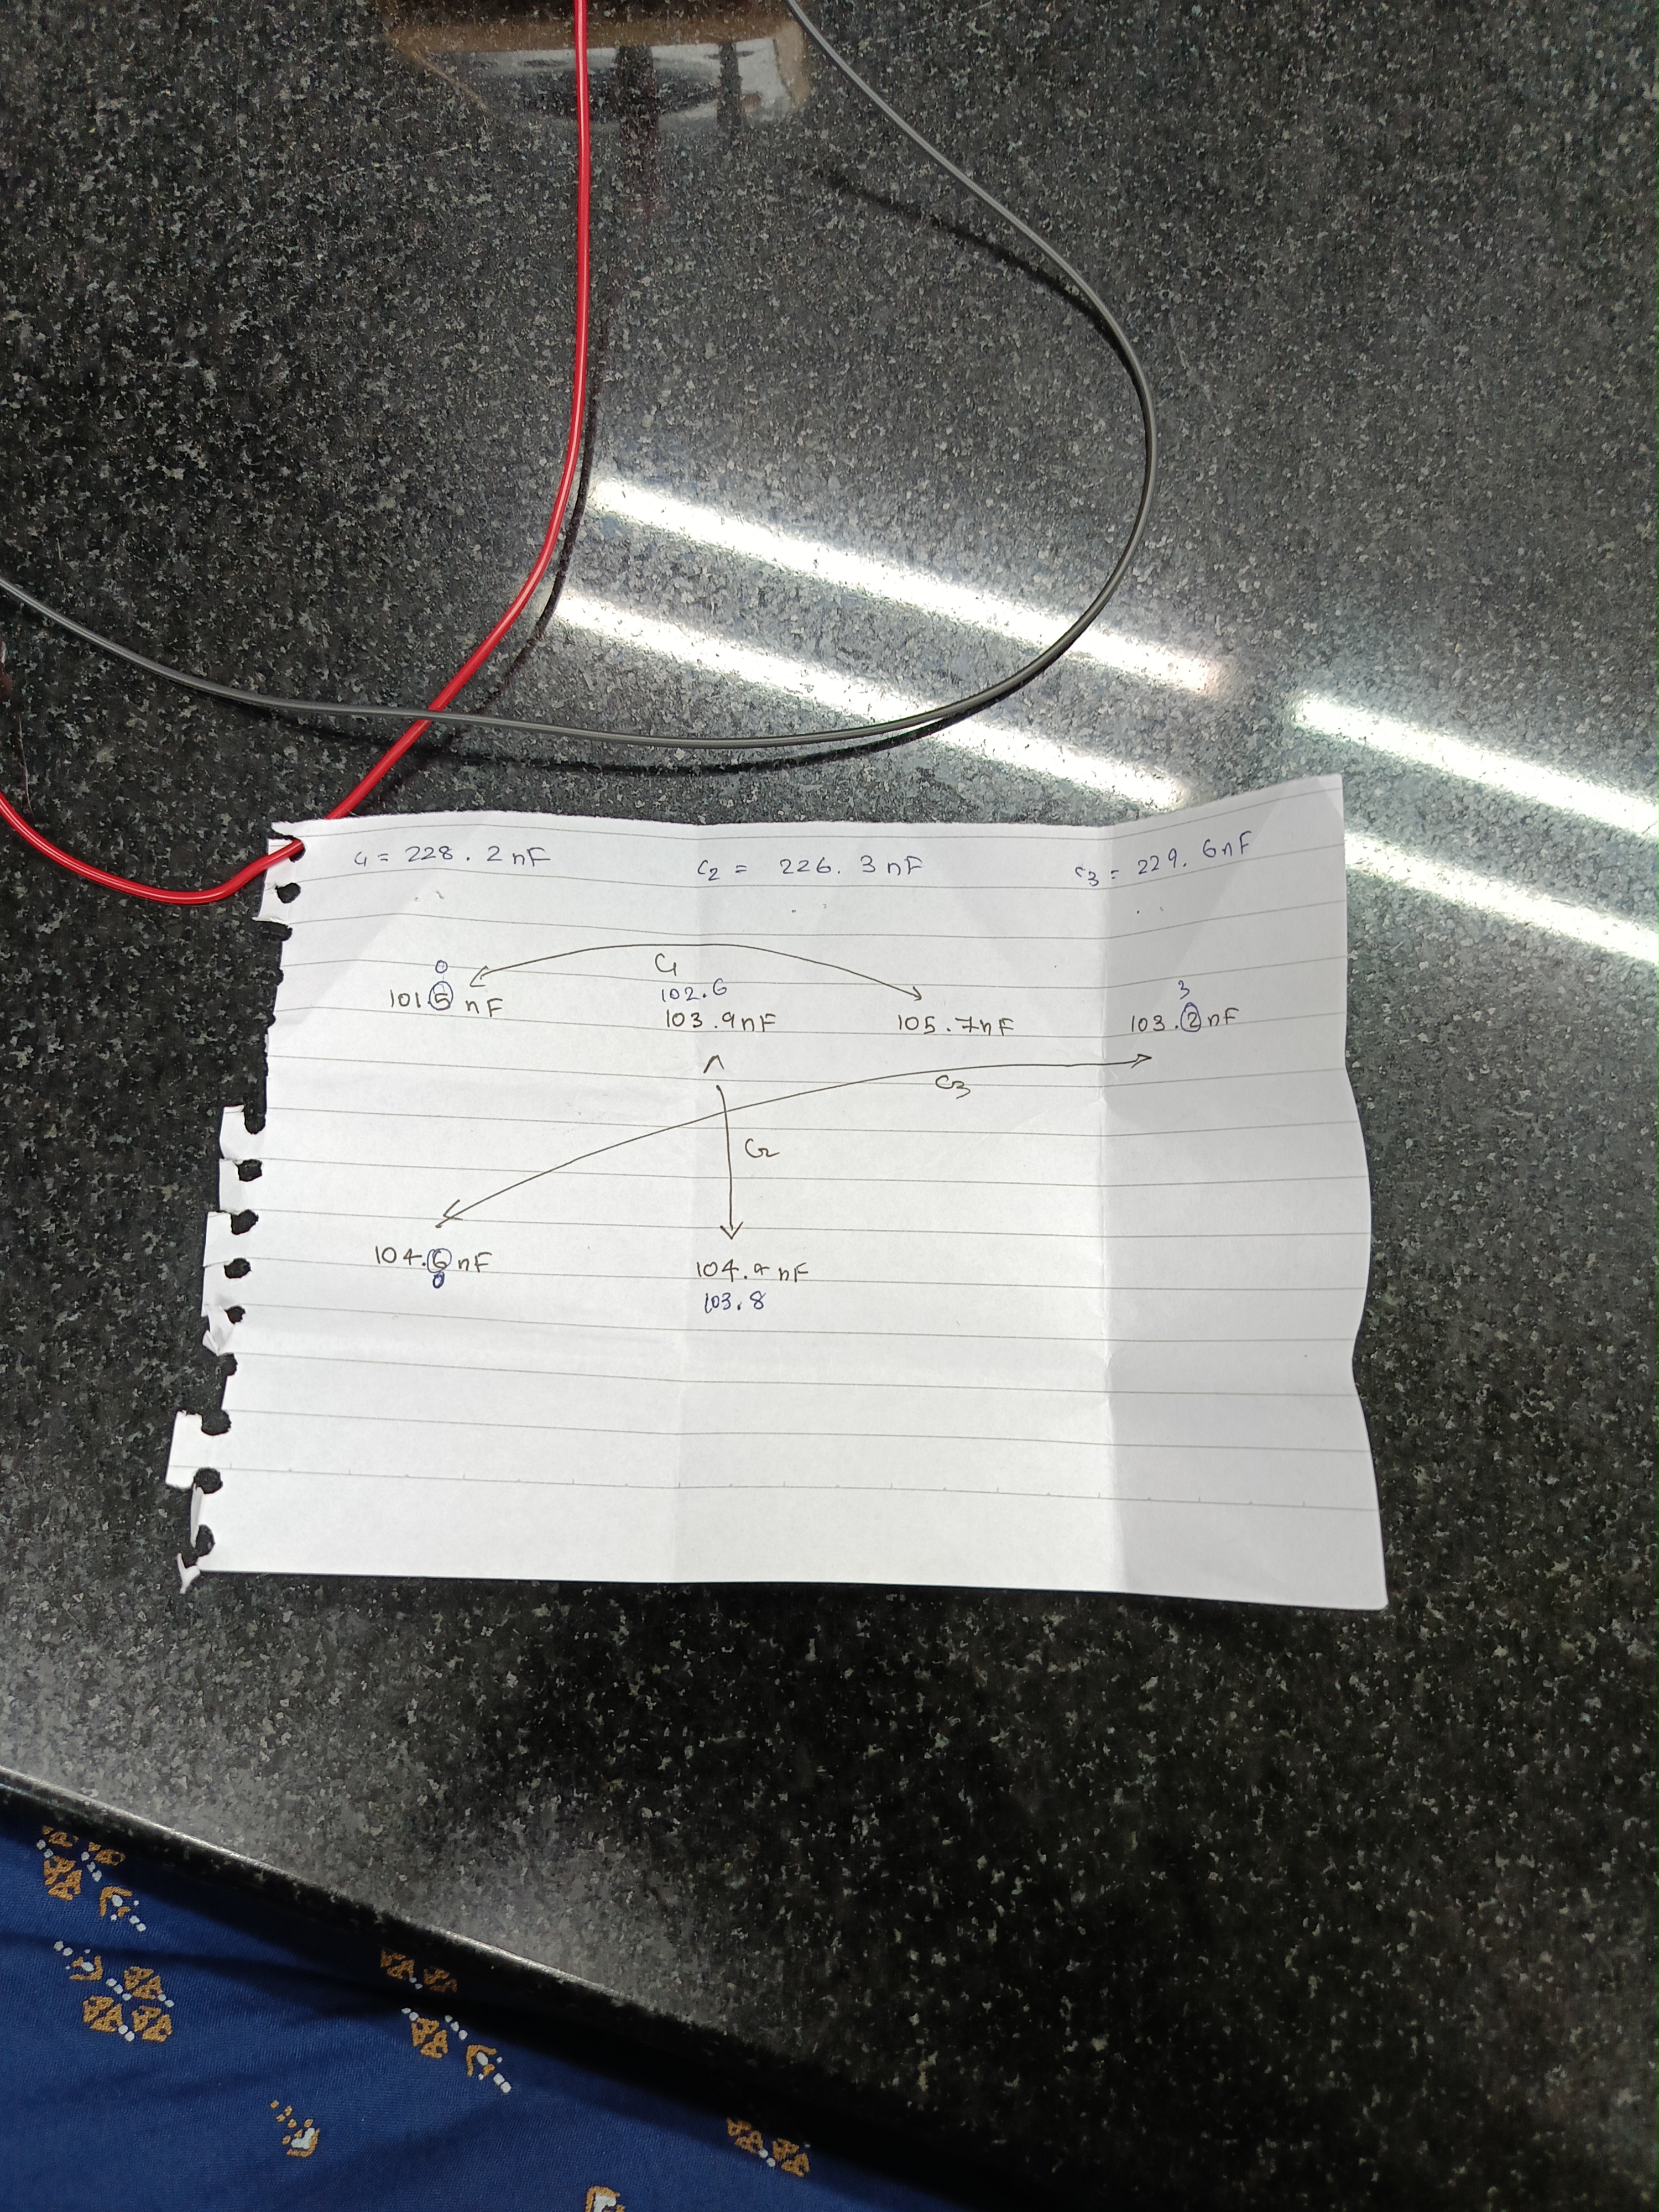 C1 = 228.2 nF C2 = 226.3 nF C3 = 229.6 nF
0 C1 3
102.6
101.5 nF 103.9 nF 105.7 nF 103.2 nF
C3
C2
104.6 nF 104.9 nF
0 103.8